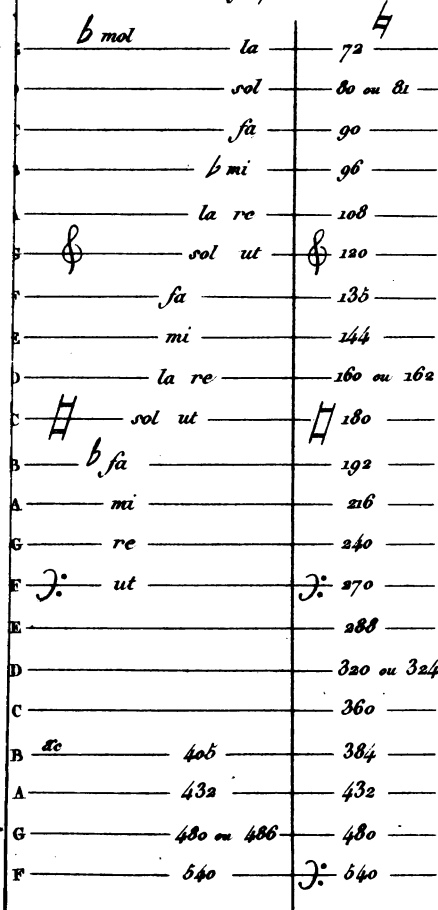 ♭ mol ♮
la 72
sol 80 ou 81
fa 90
♭ mi 96
la re 108
sol ut 120
F fa 135
E mi 144
D la re 160 ou 162
C sol ut 180
B ♭ fa 192
A mi 216
G re 240
F ut 270
E 288
D 320 ou 324
C 360
B &c 405 384
A 432 432
G 480 ou 486 480
F 540 540